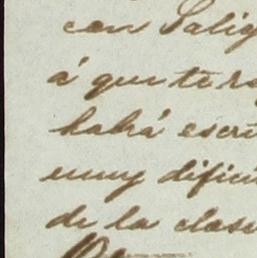 con Salig
á que te re
habrá escri
muy difici
de la clase